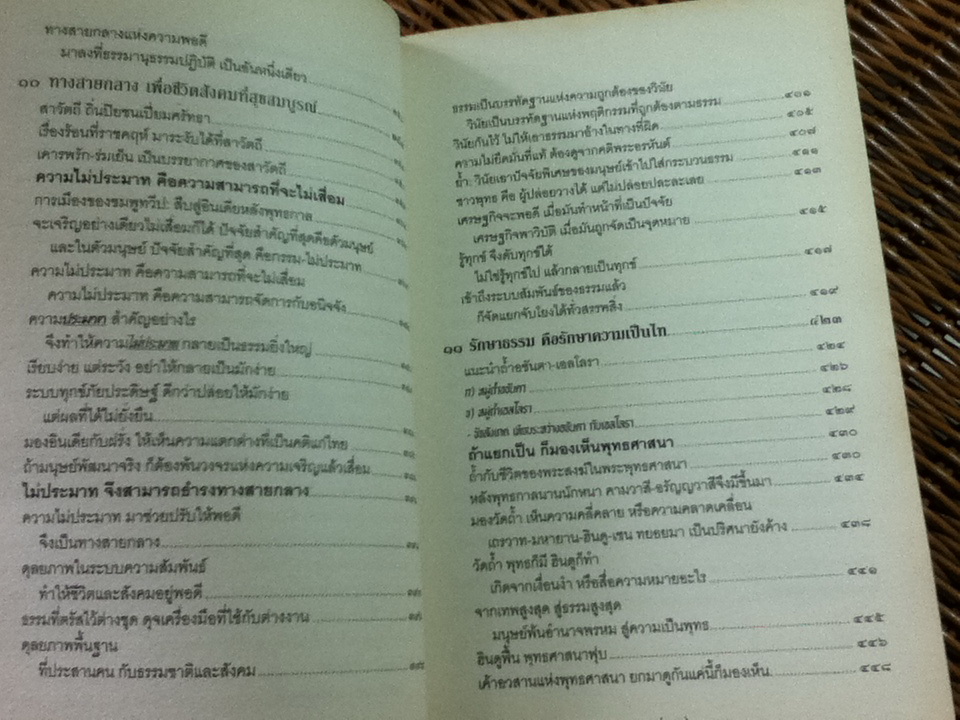 ทางสายกลางแห่งความพอดี
มาลงที่ธรรมานุธรรมปฏิบัติ เป็นขันหนึ่งเดียว
๑๐ ทางสายกลาง เพื่อชีวิตสังคมที่สุขสมบูรณ์
สาวัตถี ถิ่นปิยชนเปี่ยมศรัทธา
เรื่องร้อนที่ราชคฤห์ มาระงับได้ที่สาวัตถี
เคารพรัก-ร่มเย็น เป็นบรรยากาศของสาวัตถี
ความไม่ประมาท คือความสามารถที่จะไม่เสื่อม
การเมืองของชมพูทวีป: สืบสู่อินเดียหลังพุทธกาล
จะเจริญอย่างเดียวไม่เสื่อมก็ได้ ปัจจัยสำคัญที่สุดคือตัวมนุษย์
และในตัวมนุษย์ ปัจจัยสำคัญที่สุด คือกรรม-ไม่ประมาท
ความไม่ประมาท คือความสามารถที่จะไม่เสื่อม
ความไม่ประมาท คือความสามารถจัดการกับอนิจจัง
ความประมาท สำคัญอย่างไร
จึงทำให้ความไม่ประมาท กลายเป็นธรรมยิ่งใหญ่
เรียบง่าย แต่ระวัง อย่าให้กลายเป็นมักง่าย
ระบบทุกข์ภัยประดิษฐ์ ดีกว่าปล่อยให้มักง่าย
แต่ผลที่ได้ไม่ยั่งยืน
มองอินเดียกับฝรั่ง ให้เห็นความแตกต่างที่เป็นคติแก่ไทย
ถ้ามนุษย์พัฒนาจริง ก็ต้องพ้นวงจรแห่งความเจริญแล้วเสื่อม
ไม่ประมาท จึงสามารถธำรงทางสายกลาง
ความไม่ประมาท มาช่วยปรับให้พอดี
จึงเป็นทางสายกลาง
ดุลยภาพในระบบความสัมพันธ์
ทำให้ชีวิตและสังคมอยู่พอดี
ธรรมที่ตรัสไว้ต่างชุด ดุจเครื่องมือที่ใช้กับต่างงาน
ดุลยภาพพื้นฐาน
ที่ประสานคน กับธรรมชาติและสังคม
ธรรมเป็นบรรทัดฐานแห่งความถูกต้องของวินัย
วินัยเป็นบรรทัดฐานแห่งพฤติกรรมที่ถูกต้องตามธรรม ๔๓๑
วินัยกันไว้ ไม่ให้เอาธรรมมาอ้างในทางที่ผิด ๔๐๕
ความไม่ยึดมั่นที่แท้ ต้องดูจากคติพระอรหันต์ ๔๐๗
ย้ำ: วินัยเอาปัจจัยพิเศษของมนุษย์เข้าไปใส่กระบวนธรรม ๔๑๑
ชาวพุทธ คือ ผู้ปล่อยวางได้ แต่ไม่ปล่อยปละละเลย ๔๑๓
เศรษฐกิจจะพอดี เมื่อมันทำหน้าที่เป็นปัจจัย
เศรษฐกิจพาวิบัติ เมื่อมันถูกจัดเป็นจุดหมาย ๔๑๕
รู้ทุกข์ จึงดับทุกข์ได้
ไม่ใช่รู้ทุกข์ไป แล้วกลายเป็นทุกข์ ๔๑๗
เข้าถึงระบบสัมพันธ์ของธรรมแล้ว
ก็จัดแยกจับโยงได้ทั่วสรรพสิ่ง ๔๑๙
๑๑ รักษาธรรม คือรักษาความเป็นไท ๔๒๓
แนะนำถ้ำอชันตา-เอลโลรา ๔๒๔
ก) หมู่ถ้ำอชันตา ๔๒๖
ข) หมู่ถ้ำเอลโลรา ๔๒๘
- ข้อสังเกต เทียบระหว่างอชันตา กับเอลโลรา ๔๒๙
ถ้าแยกเป็น ก็มองเห็นพุทธศาสนา ๔๓๐
ถ้ำกับชีวิตของพระสงฆ์ในพระพุทธศาสนา ๔๓๐
หลังพุทธกาลนานนักหนา คามวาสี-อรัญญวาสีจึงมีขึ้นมา ๔๓๔
มองวัดถ้ำ เห็นความคลี่คลาย หรือความคลาดเคลื่อน
เถรวาท-มหายาน-ฮินดู-เชน ทยอยมา เป็นปริศนายังค้าง ๔๓๘
วัดถ้ำ พุทธก็มี ฮินดูก็ทำ
เกิดจากเงื่อนงำ หรือสื่อความหมายอะไร ๔๔๑
จากเทพสูงสุด สู่ธรรมสูงสุด
มนุษย์พ้นอำนาจพรหม สู่ความเป็นพุทธ ๔๔๕
ฮินดูฟื้น พุทธศาสนาฟุบ ๔๔๖
เค้าอวสานแห่งพุทธศาสนา ยกมาดูกันแค่นี้ก็มองเห็น ๔๔๘